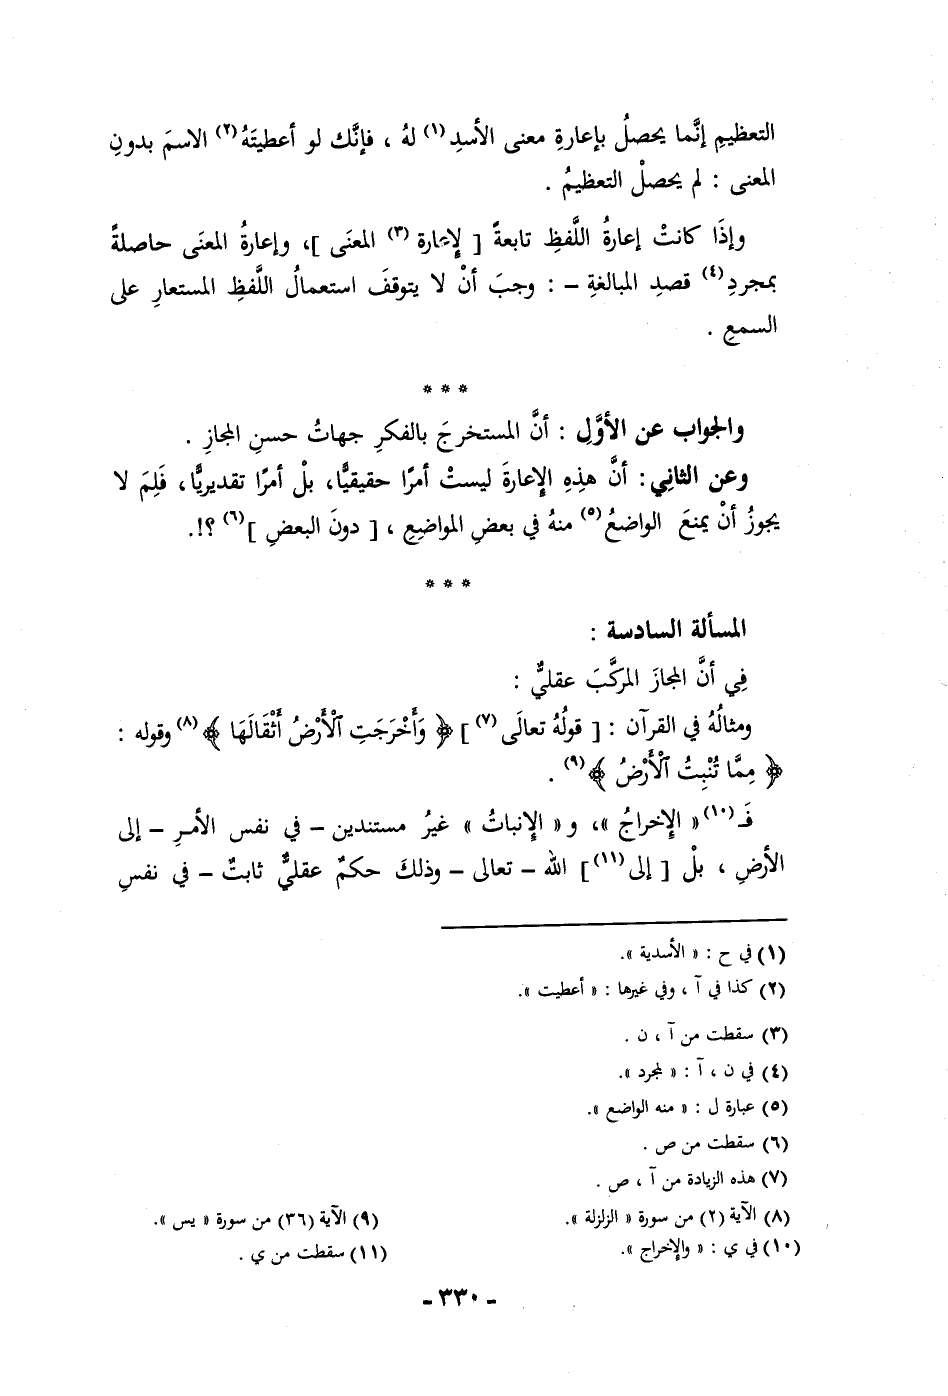 التعظيمِ إنَّما يحصلُ بإعارةِ معنى الأسدِ(١) لهُ ، فإنَّك لو أعطيتَهُ(٢) الاسمَ بدونِ
المعنى : لم يحصلْ التعظيمُ .
وإذَا كانتْ إعارةُ اللَّفظِ تابعةً [ لإعارة (٣) المعنَى ]، وإعارةُ المعنَى حاصلةً
بمجردِ(٤) قصدِ المبالغةِ – : وجبَ أنْ لا يتوقفَ استعمالُ اللَّفظِ المستعارِ على
السمعِ .
* * *
والجواب عن الأوَّلِ : أنَّ المستخرجَ بالفكرِ جهاتُ حسنِ المجازِ .
وعن الثانِي : أنَّ هذِهِ الإعارةَ ليستْ أمرًا حقيقيًّا، بلْ أمرًا تقديريًّا، فَلِمَ لا
يجوزُ أنْ يمنعَ الواضعُ(٥) منهُ في بعضِ المواضِعِ ، [ دونَ البعضِ ](٦) ؟!.
* * *
المسألة السادسة :
فِي أنَّ المجازَ المركَّبَ عقليٌّ :
ومثالُهُ في القرآن : [ قولُهُ تعالَى (٧) ] ﴿ وَأَخْرَجَتِ ٱلْأَرْضُ أَثْقَالَهَا ﴾(٨) وقوله :
﴿ مِمَّا تُنْبِتُ ٱلْأَرْضُ ﴾(٩) .
فَـ(١٠)« الإخراجُ »، و « الإنباتُ » غيرُ مستندين – في نفس الأمـرِ – إلى
الأرضِ ، بلْ [ إلى(١١) ] الله – تعالى – وذلكَ حكمٌ عقليٌّ ثابتٌ – في نفسِ
(١) في ح : « الأسدية ».
(٢) كذا في آ ، وفي غيرها : « أعطيت ».
(٣) سقطت من آ ، ن .
(٤) في ن ، آ : « لمجرد ».
(٥) عبارة ل : « منه الواضع ».
(٦) سقطت من ص .
(٧) هذه الزيادة من آ ، ص .
(٨) الآية (٢) من سورة « الزلزلة ». (٩) الآية (٣٦) من سورة « يس ».
(١٠) في ي : « والإخراج ». (١١) سقطت من ي .
- ٣٣٠ -